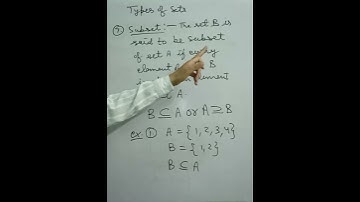 Types of Sets
⑦ Subset:— The set B is
said to be subset
of set A if every
element
B
element
A.
B ⊆ A or A ⊇ B
ex. ① A = {1, 2, 3, 4}
B = {1, 2}
B ⊆ A